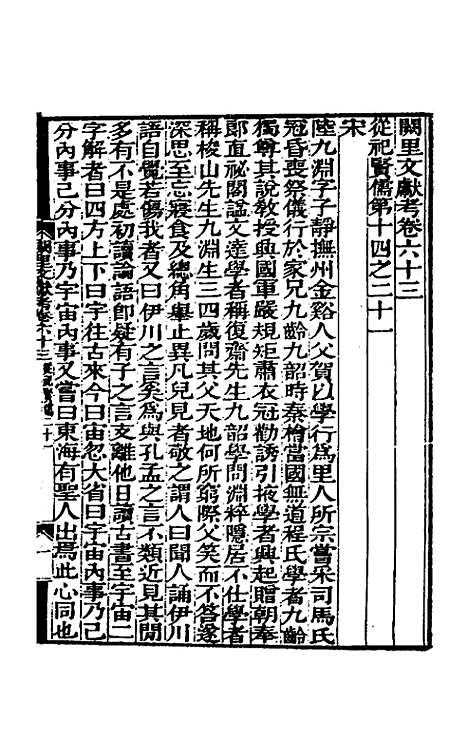 闕里文獻考卷六十三
從祀賢儒第十四之二十一
宋
陸九淵字子靜撫州金谿人父賀以學行爲里人所宗嘗采司馬氏
冠昏喪祭儀行於家兄九齡九韶時秦檜當國無道程氏學者九齡
獨尊其說教授興國軍嚴規矩肅衣冠勸誘引掖學者興起贈朝奉
郎直祕閣諡文達學者稱復齋先生九韶學問淵粹隱居不仕學者
稱梭山先生九淵生三四歲問其父天地何所窮際父笑而不答遂
深思至忘寢食及總角舉止異凡兒見者敬之謂人曰聞人誦伊川
語自覺若傷我者又曰伊川之言奚爲與孔孟之言不類近見其閒
多有不是處初讀論語卽疑有子之言支離他日讀古書至宇宙二
字解者曰四方上下曰宇往古來今曰宙忽大省曰宇宙內事乃己
分內事己分內事乃宇宙內事又嘗曰東海有聖人出焉此心同也
闕里文獻考卷六十三
從祀賢儒二十一
一